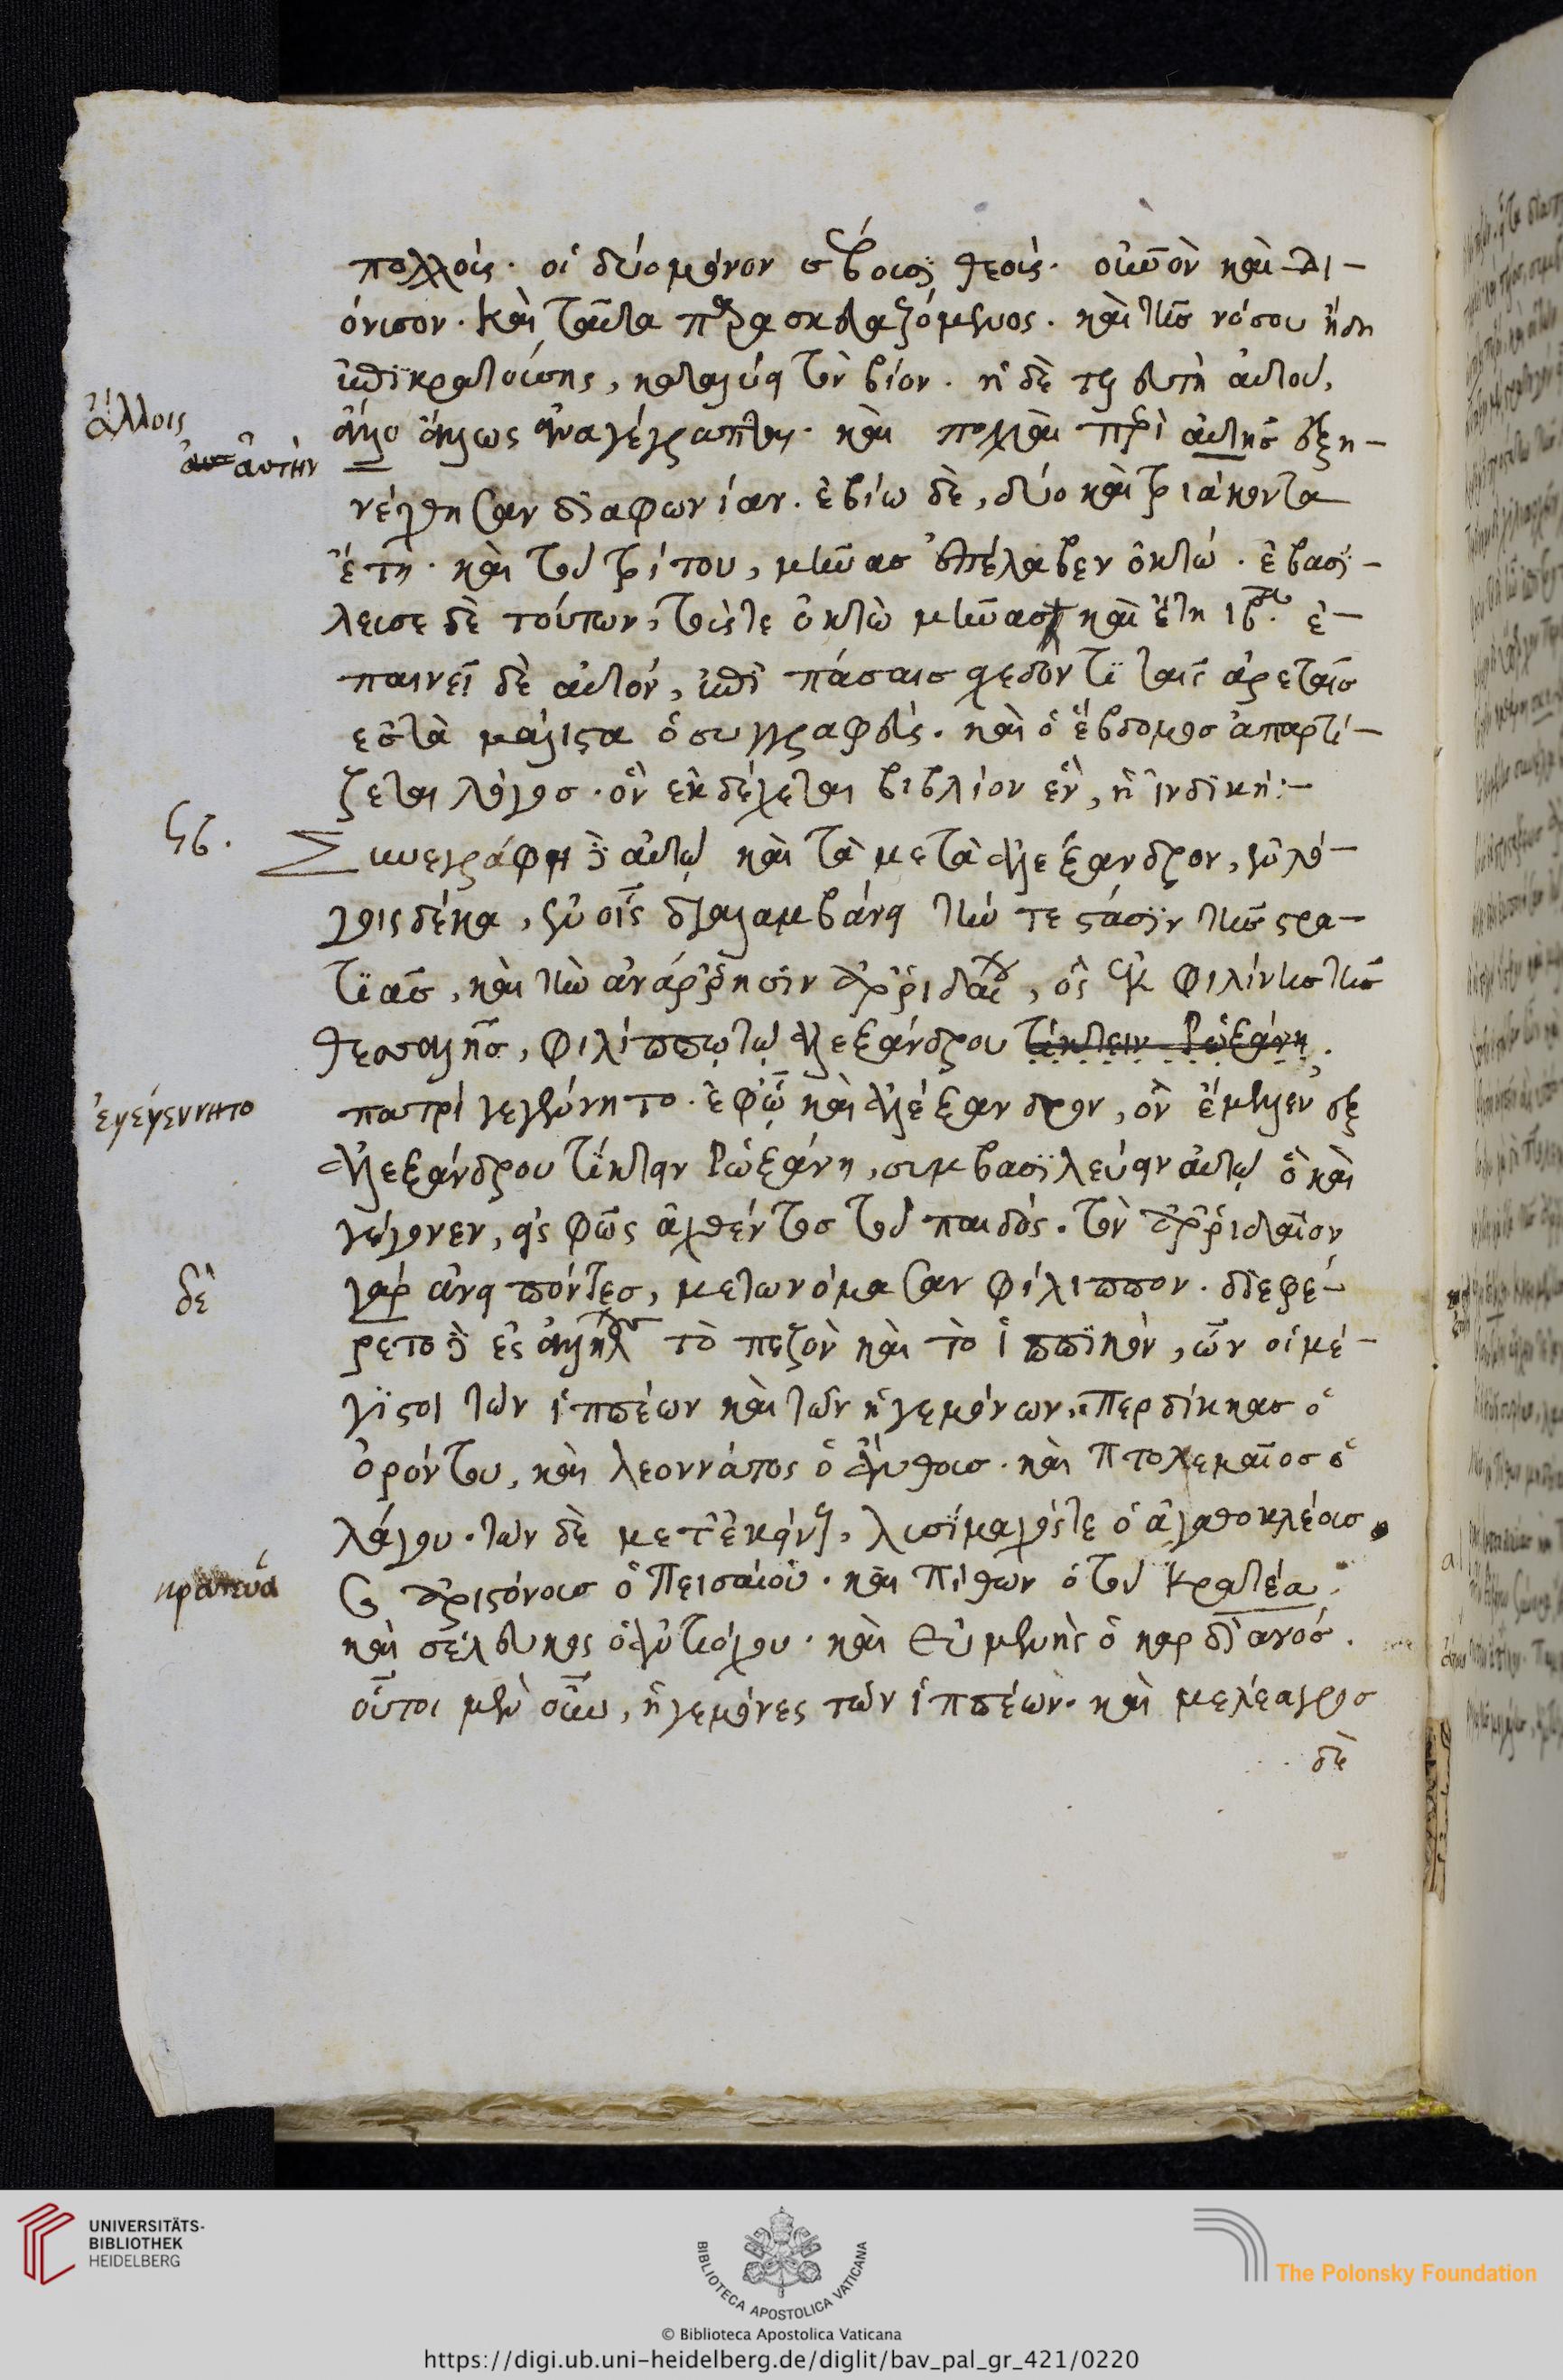 πολλοῖς. οἱ δύο μόνον σέβουσι θεοῖς. οὐνὸν καὶ Δι-
όνισον. καὶ ταῦτα παρασκευαζόμενος. καὶ τῆς νόσου ἤδη
ἐπικρατούσης, καταλύει τὸν βίον. ἡ δὲ τελευτὴ αὐτοῦ,
ἄλλοις
ἄλλο ἄλλως ἀναγέγραπται. καὶ πολλὰ περὶ αὐτῆς ἐξη-
αὐτὴν
νέχθησαν διαφωνίαν. ἐβίω δὲ, δύο καὶ τριάκοντα
ἔτη. καὶ τοῦ τρίτου, μῆνας ἐπέλαβεν ὀκτώ. ἐβασί-
λευσε δὲ τούτων, τούς τε ὀκτὼ μῆνας καὶ ἔτη ιβ. ἐ-
παινεῖ δὲ αὐτόν, ἐπὶ πάσαις σχεδόν τι ταῖς ἀρεταῖς
ἐς τὰ μάλιστα ὁ συγγραφεύς. καὶ ὁ ἕβδομος ἀπαρτί-
ζεται λόγος. ὃν ἐκδέχεται βιβλίον ἓν, ἡ ἰνδική:-
ϟβ.
Συνεγράφη δὲ αὐτῷ καὶ τὰ μετὰ ἀλέξανδρον, ἐν λό-
γοις δέκα, ἐν οἷς διαλαμβάνει τήν τε στάσιν τῆς στρα-
τιᾶς, καὶ τὴν ἀνάρρησιν ἀρριδαίου, ὃς ἐκ φιλίνης τῆς
θεσσαλῆς, φιλίππῳ τῷ ἀλεξάνδρου τίκτειν Ῥωξάνη,
ἐγεγέννητο
πατρὶ γεγένητο. ἐφ' ᾧ καὶ ἀλέξανδρον, ὃν ἔμελλεν ἐξ
ἀλεξάνδρου τίκτειν Ῥωξάνη, συμβασιλεύειν αὐτῷ ὃ καὶ
γέγονεν, εἰς φῶς ἀχθέντος τοῦ παιδός. τὸν ἀρριδαῖον
δὲ
γὰρ ἀνειπόντες, μετωνόμασαν φίλιππον. διεφέ-
ρετο δὲ ἐς ἀλλήλους τὸ πεζὸν καὶ τὸ ἱππικόν, ὧν οἱ μέ-
γιστοι τῶν ἱππέων καὶ τῶν ἡγεμόνων. Περδίκκας ὁ
ὀρόντου, καὶ λεοννάτος ὁ ἄνθους. καὶ πτολεμαῖος ὁ
λάγου. τῶν δὲ μετ' ἐκείνους, λυσίμαχός τε ὁ ἀγαθοκλέους
κρατευά
καὶ ἀριστόνους ὁ Πεισαίου. καὶ Πίθων ὁ τοῦ κρατέα.
καὶ σέλευκος ὁ ἀντιόχου. καὶ εὐμενὴς ὁ καρδιανός.
οὗτοι μὲν οὖν, ἡγεμόνες τῶν ἱππέων. καὶ μελέαγρος
δὲ
UNIVERSITÄTS-
BIBLIOTHEK
HEIDELBERG
BIBLIOTECA APOSTOLICA VATICANA
The Polonsky Foundation
© Biblioteca Apostolica Vaticana
https://digi.ub.uni-heidelberg.de/diglit/bav_pal_gr_421/0220